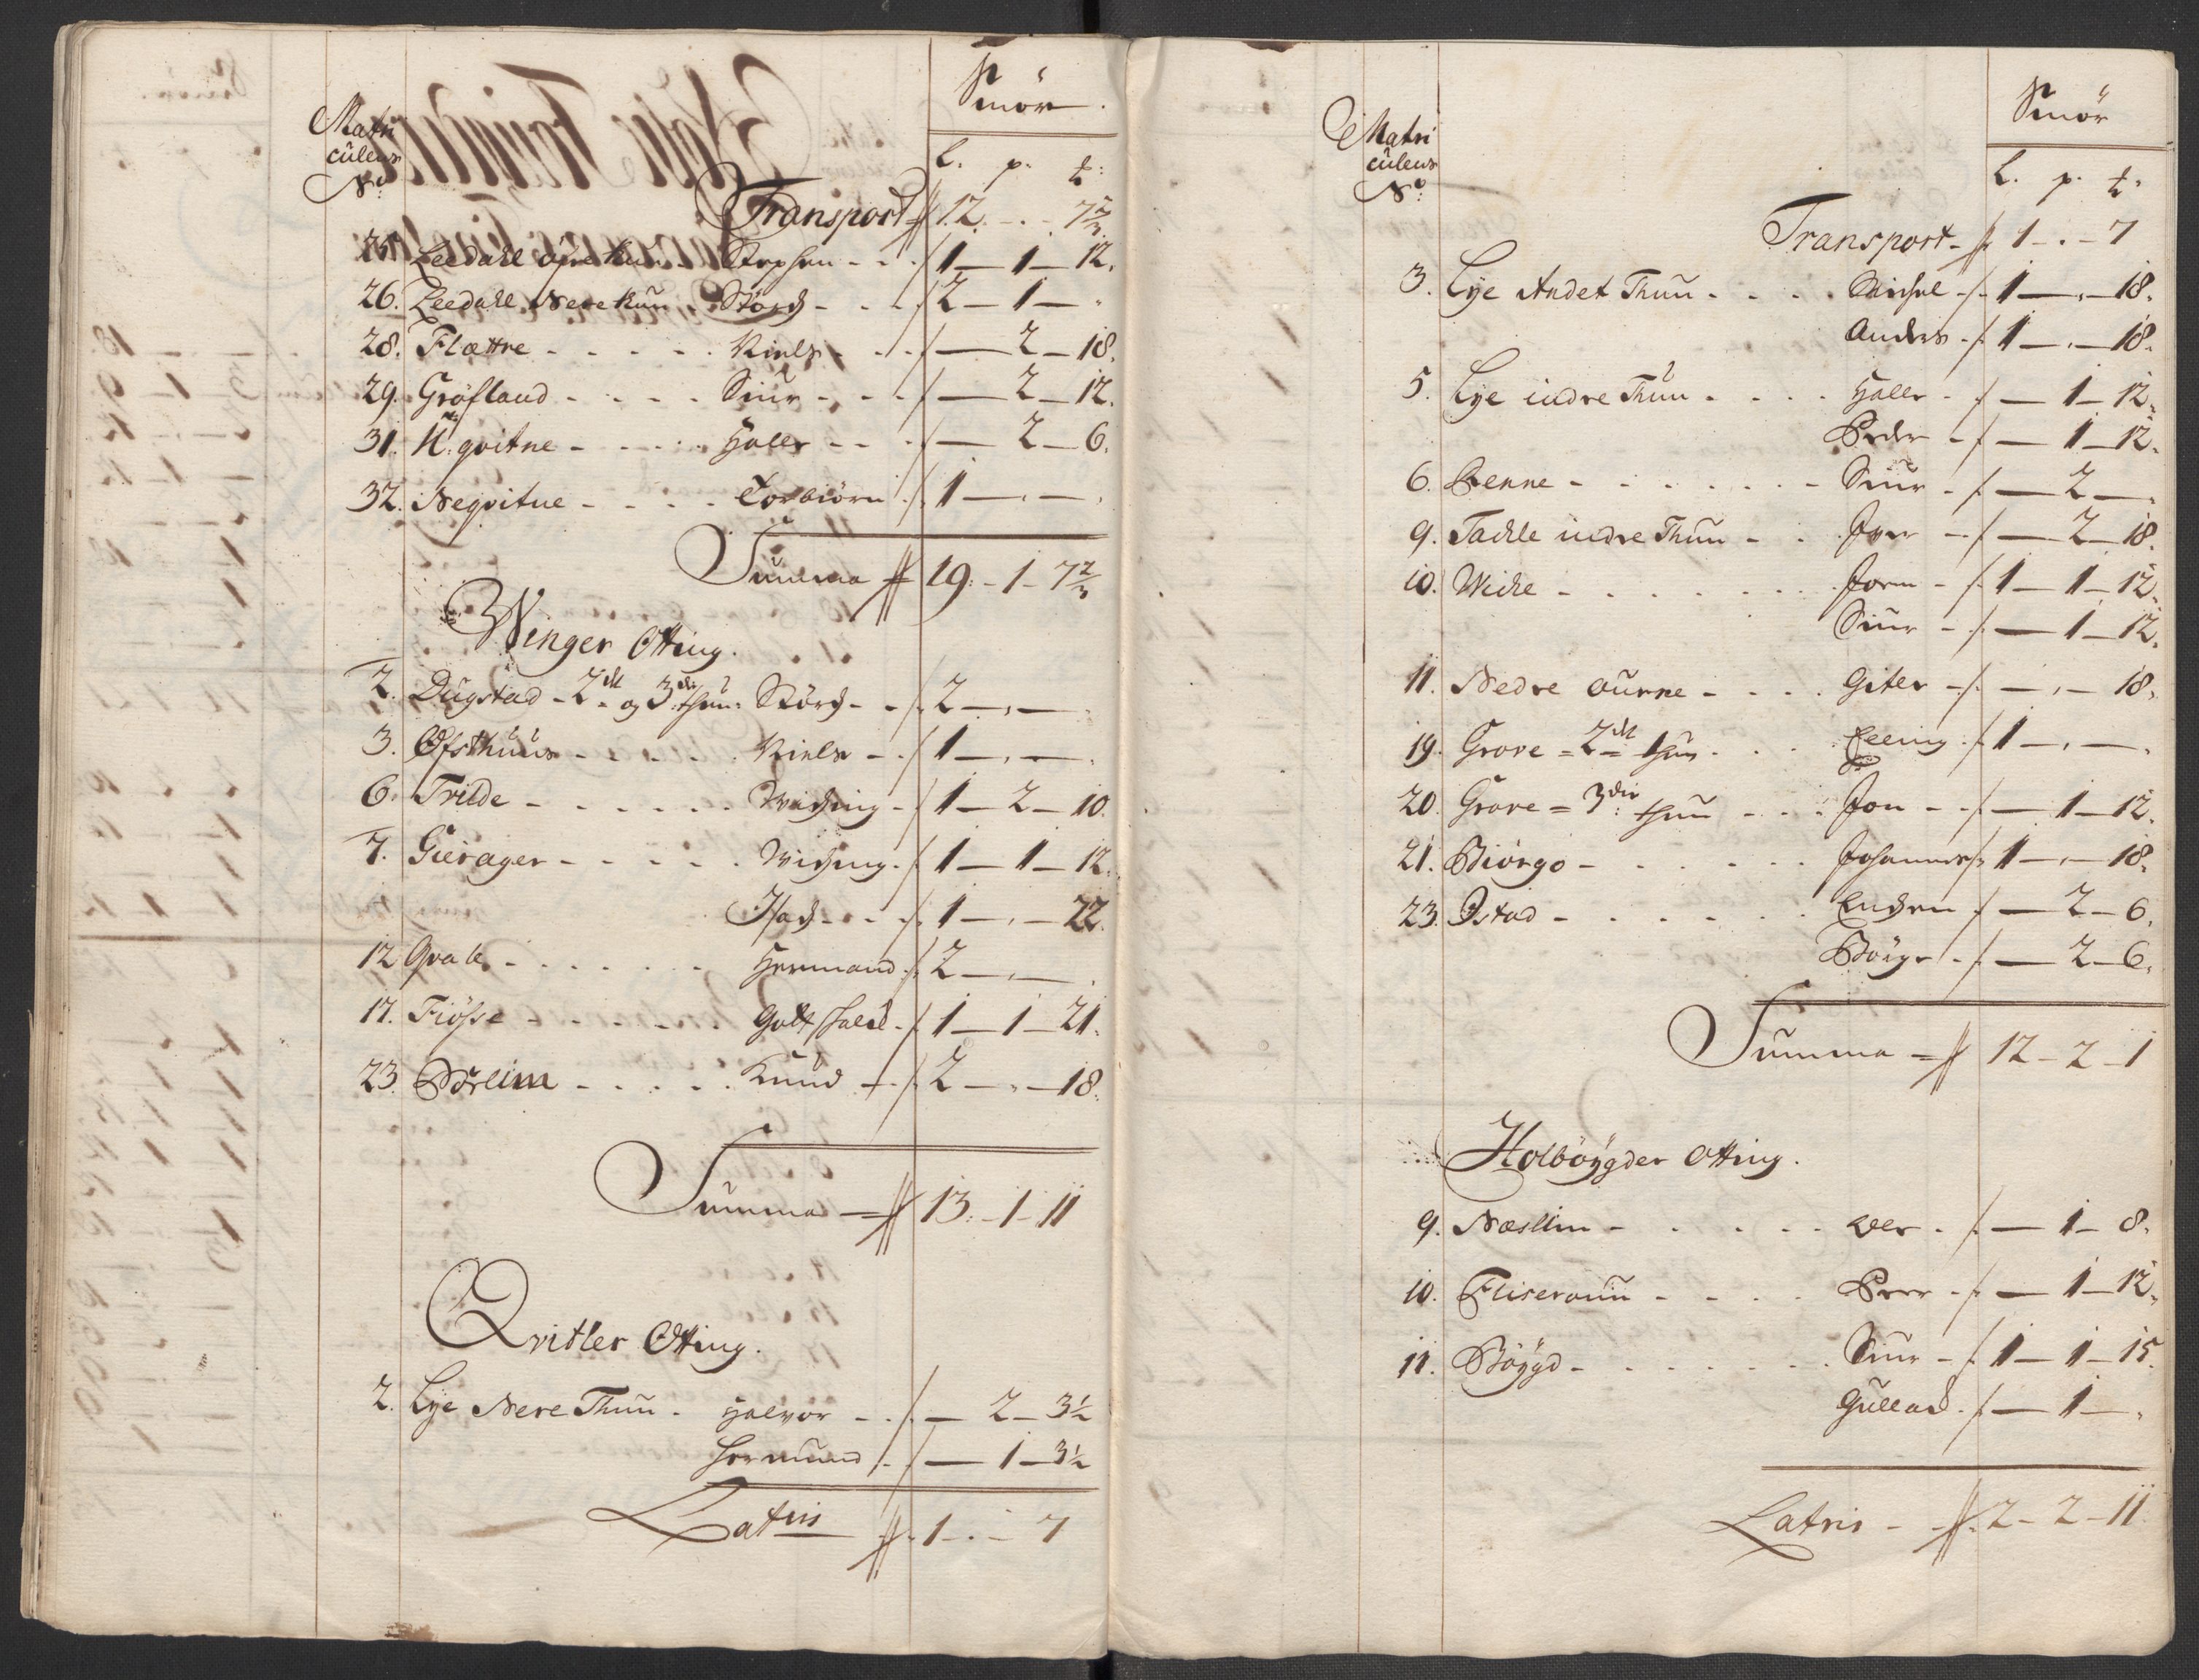 Matri
culens
No:
Smör.
L. p. t:
Transport 12. - . - 7 2/3
25. Leedahl öfre thun - Stephen - - 1 - 1 - 12.
26. Leedahl Nere thun - Störck - - 2 - 1 - .
28. Flættre - - - - - Niels - - - 2 - 18.
29. Gröfland - - - - Siur - - - 2 - 12.
31. N: qvitne - - - - Halle - - - 2 - 6.
32. Neqvitne - - - - Torbiörn 1 - . - .
Summa 19: - 1 - 7 2/3
Winger Otting.
2. Dugstad - 2det og 3die thun: Störck - - 2 - . - .
3. Ofsthuus - - - - - Niels - 1 - . - .
6. Trilde - - - - - - Wiching - 1 - 2 - 10.
7. Gierager - - - - - Wiching - 1 - 1 - 12.
Isach - - - 1 - . - 22.
12 Qvale - - - - - - Hermand 2 - . - .
17. Fiösse - - - - - Gottschalck - 1 - 1 - 21.
23. Börlim - - - - - Knud - 2 - . - 18.
Summa 13: - 1 - 11
Qvitler Otting.
2. Lye Nere Thun - Halvor - - - 2 - 3 1/2
Hermund - - 1 - 3 1/2
Latris 1 - . - 7
Matri
culens
No:
Smör
L. p. t:
Transport - 1 - . - 7
3. Lye Andet Thun - - - Michel - 1 - . - 18.
Anders - 1 - . - 18.
5. Lye indre Thun - - - - Halle - - 1 - 12.
Peder - - 1 - 12.
6. Renne - - - - - - - Siur - - 2 - .
9. Tachle indre Thun - - Iver - - 2 - 18.
10. Wiche - - - - - - - Jorm - 1 - 1 - 12.
Siur - - 1 - 12.
11. Nedre Ourne - - - - Gitle - - . - 18.
19. Grove = 2det thun - - - Elling 1 - . - .
20. Grove = 3die: thun - - - Jon - - - 1 - 12.
21. Biörgo - - - - - - Johannes 1 - . - 18.
23. Istad - - - - - - Enchen - 2 - 6.
Börge - - 2 - 6.
Summa - 12 - 2 - 1
Holböygder Otting.
9. Næslim - - - - - Ole - - 1 - 8.
10. Fliseraun - - - - Peer - - 1 - 12.
11. Böygd - - - - - - Siur - 1 - 1 - 15.
Gullack - - 1 - .
Latris - - 2 - 2 - 11.